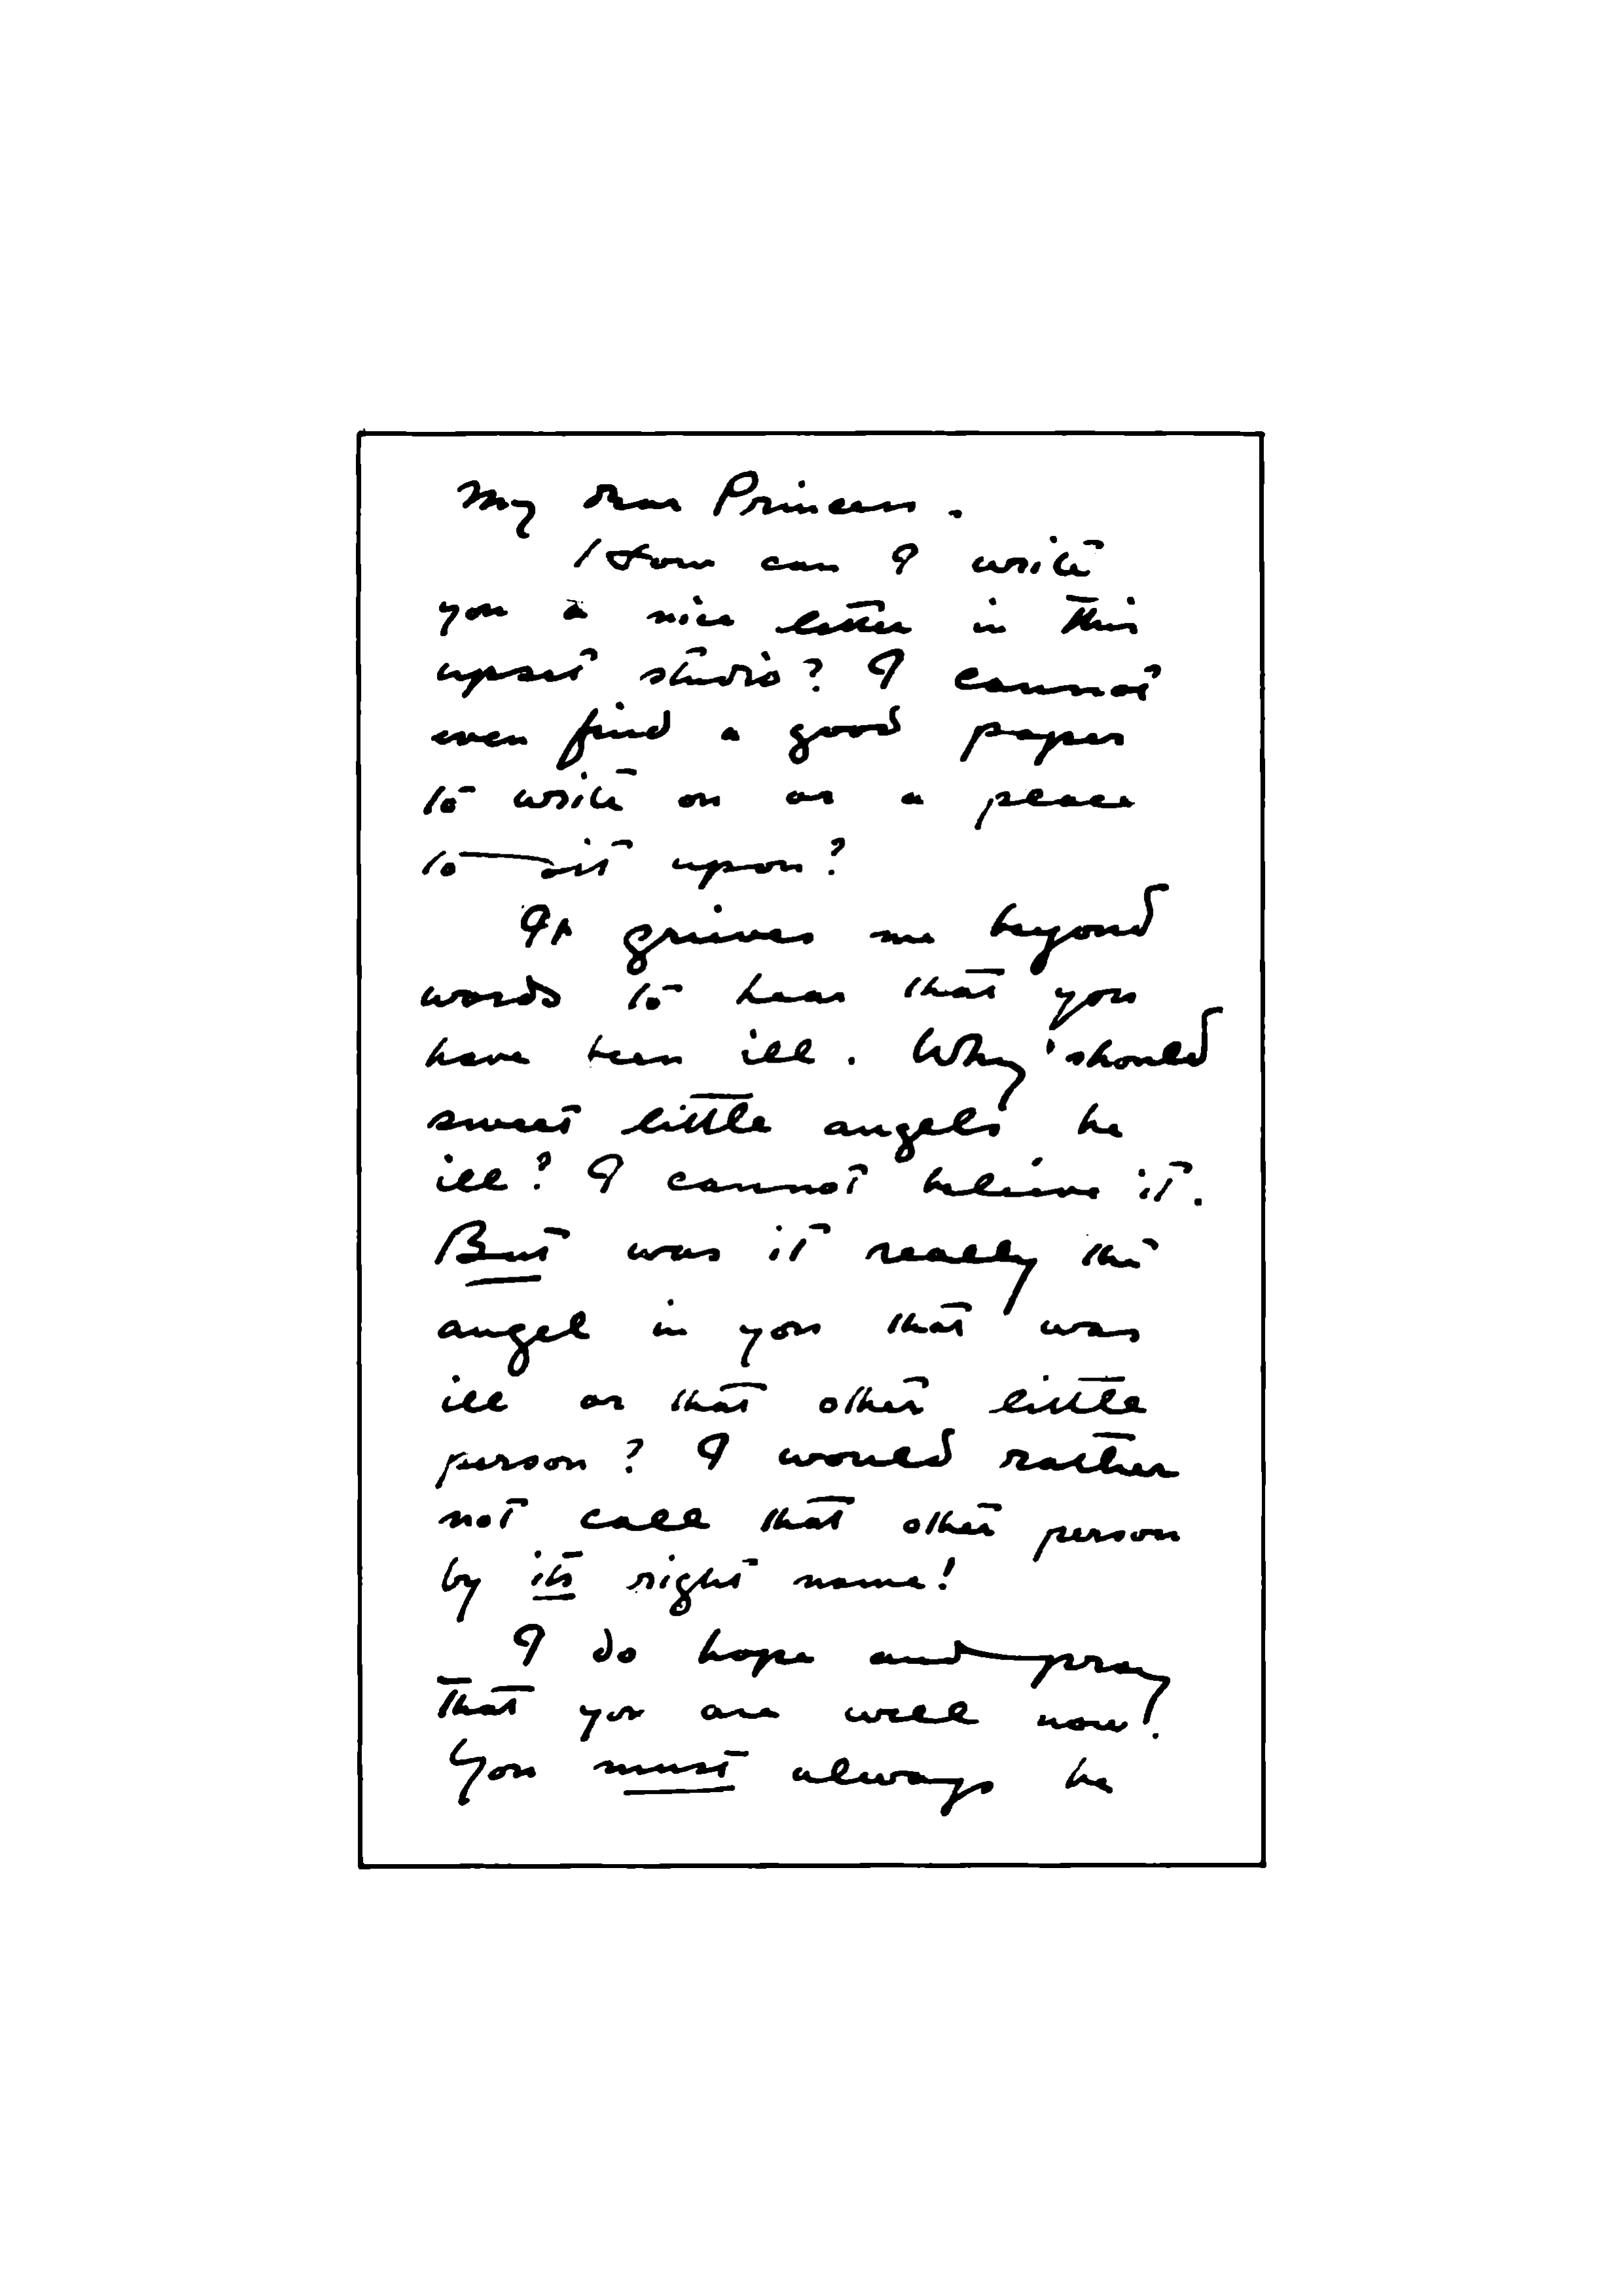 My dear Princess.
How can I write
you a nice letter in this
upset studio? I cannot
even find a good paper
to write on or a place
to sit upon?
It grieves me beyond
words to hear that you
have been ill. Why should
sweet little angels be
ill? I cannot believe it.
But was it really the
angel in you that was
ill or that other little
person? I would rather
not call that other person
by its right name!
I do hope and pray
that you are well now!
You must always be